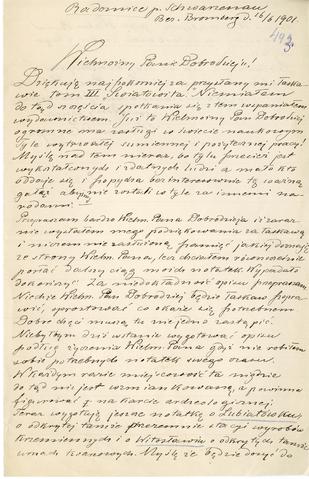 Radomice p. Schwarzenau
Bez. Bromberg d. 16/6 1901.
493
Wielmożny Panie Dobrodzieju!
Dziękuję najpokorniej za przysłany mi łaska-
wie tom III Światowita. Nie miałem
do tąd szczęścia spotkania się z tem wspaniałem
wydawnictwem. Już to Wielmożny Pan Dobrodziej
ogromne ma zasługi w świecie naukowym
Tyle wytrwałej sumiennej i pożytecznej pracy!
Myślę nad tem nieraz, bo tylu przecież jest
wykształconych i zdatnych ludzi a mało kto
oddaje się i popycha bezinteresownie tę ważną
gałąź abyśmy nie zostali w tyle za innemi na-
rodami.
Przepraszam bardzo Wielm. Pana Dobrodzieja iż zaraz
nie wysłałem mego podziękowania za łaskawą
i niczem nie zasłużoną pamięć jakiej doznaję
ze strony Wielm. Pana, lecz chciałem równocześnie
posłać dalszy ciąg moich notatek. Wypadało
dokończyć. Za niedokładność opisu przepraszam.
Niechże Wielm. Pan Dobrodziej będzie łaskaw popra-
wić, sprostować co okaże się potrzebnem
Dobre chęci muszą tu nie jedno zastąpić.
Nie byłbym dziś w stanie wygotować opisu
podług życzenia Wielm. Pana gdyż nie robiłem
sobie potrzebnych notatek swego czasu.
W każdym razie miejscowość ta nigdzie
do tąd nie jest wzmiankowaną, a powinna
figurować na karcie archeologicznej.
Teraz wygotuję jeszcze notatkę o Lubiatówku
o odkrytej tamże przezemnie stacyi wyrobów
krzemiennych i o Witosławiu o odkrytych tamże
urnach twarzowych. Myślę że będzie dosyć do